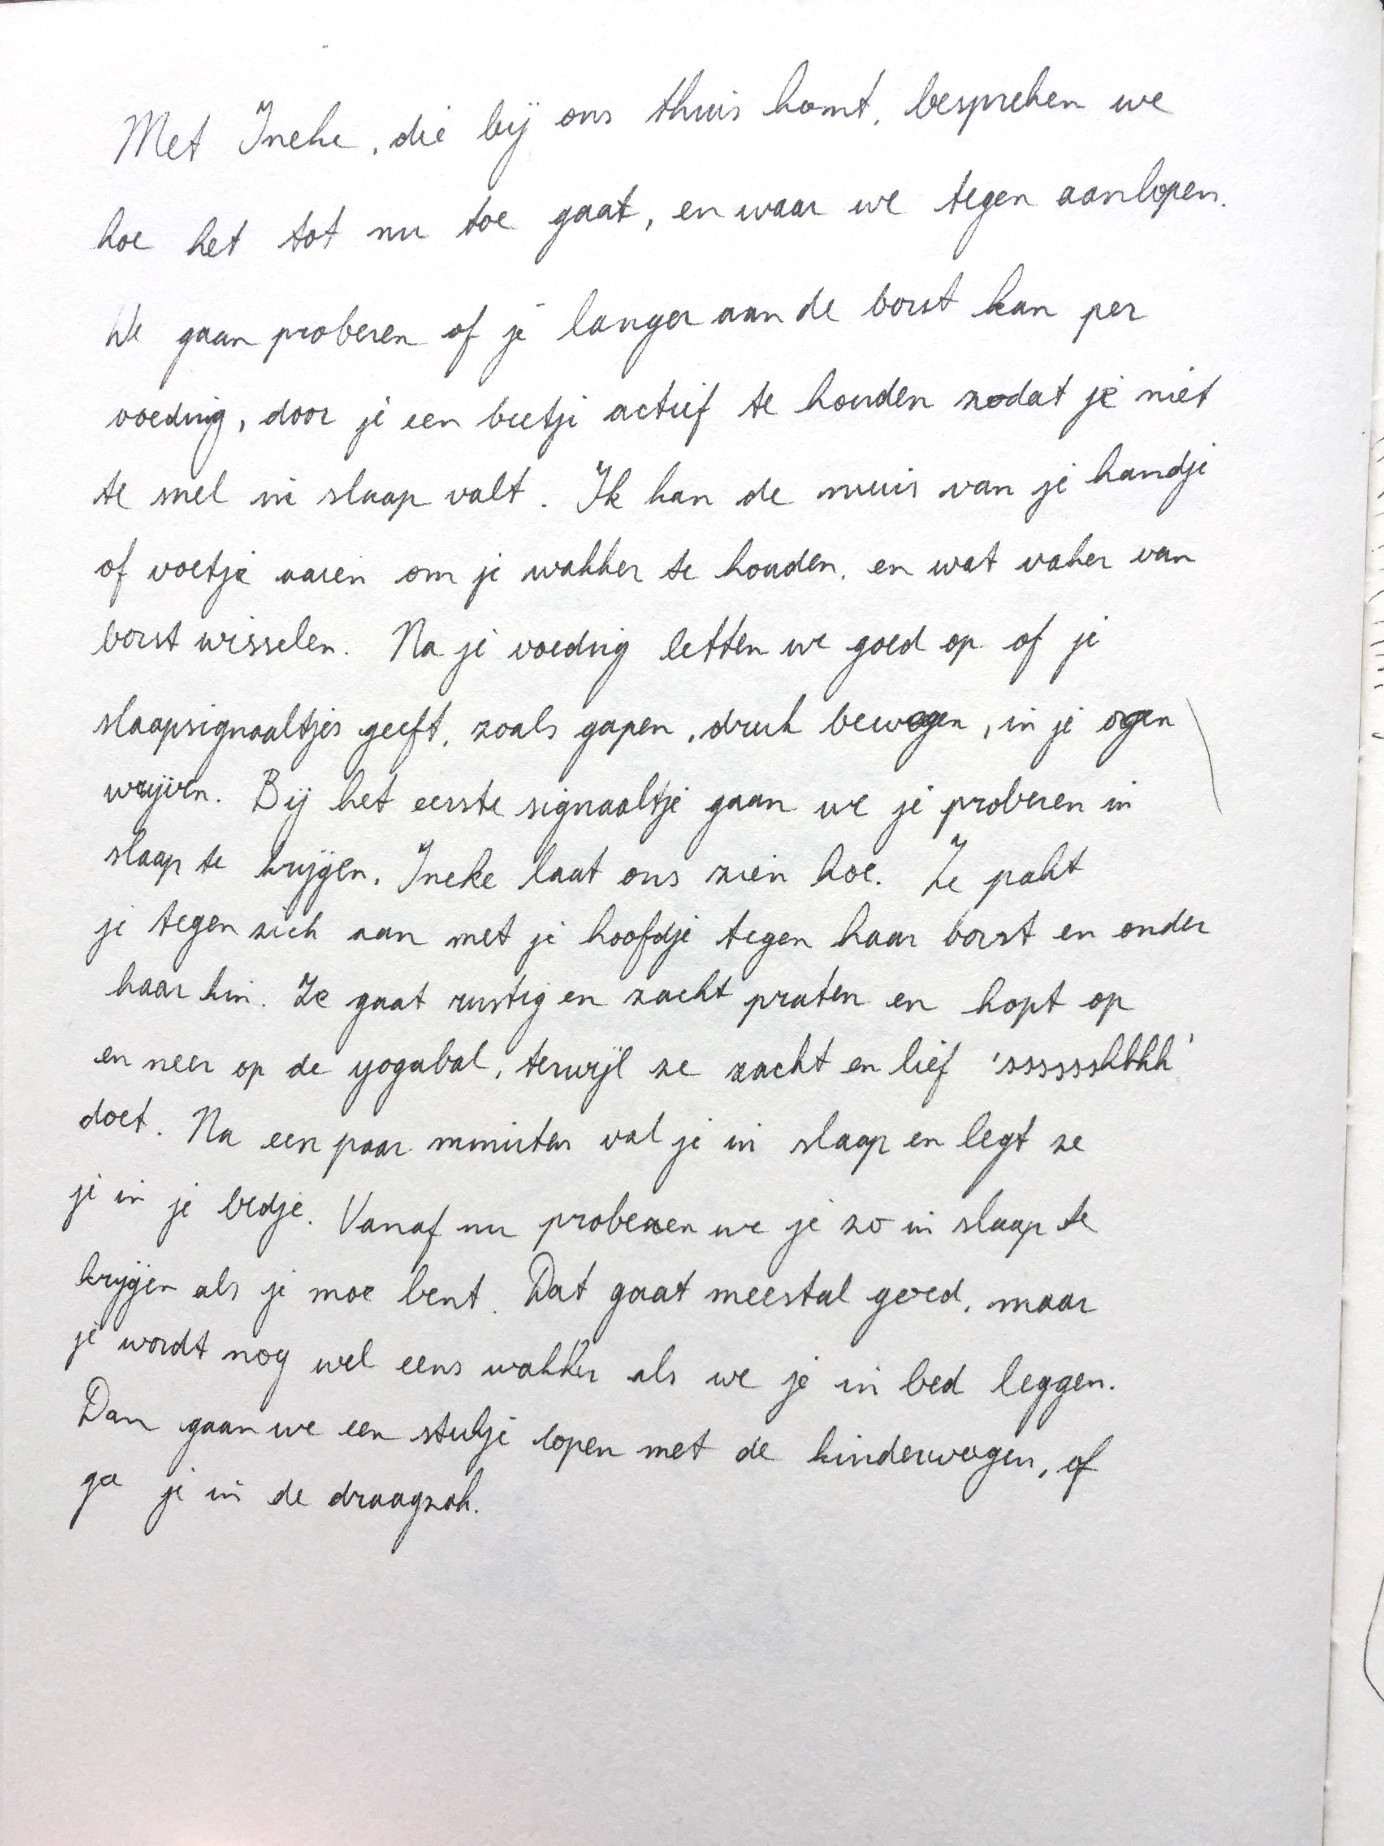 Met Ineke, die bij ons thuis komt, bespreken we
hoe het tot nu toe gaat, en waar we tegen aanlopen.
We gaan proberen of je langer aan de borst kan per
voeding, door je een beetje actief te houden zodat je niet
te snel in slaap valt. Ik kan de muis van je handje
of voetje aaien om je wakker te houden, en wat vaker van
borst wisselen. Na je voeding letten we goed op of je
slaapsignaaltjes geeft, zoals gapen, druk bewegen, in je ogen
wrijven. Bij het eerste signaaltje gaan we je proberen in
slaap te krijgen. Ineke laat ons zien hoe. Ze pakt
je tegen zich aan met je hoofdje tegen haar borst en onder
haar kin. Ze gaat rustig en zacht praten en hopt op
en neer op de yogabal, terwijl ze zacht en lief 'sssssshhhh'
doet. Na een paar minuten val je in slaap en legt ze
je in je bedje. Vanaf nu proberen we je zo in slaap te
krijgen als je moe bent. Dat gaat meestal goed, maar
je wordt nog wel eens wakker als we je in bed leggen.
Dan gaan we een stukje lopen met de kinderwagen, of
ga je in de draagzak.